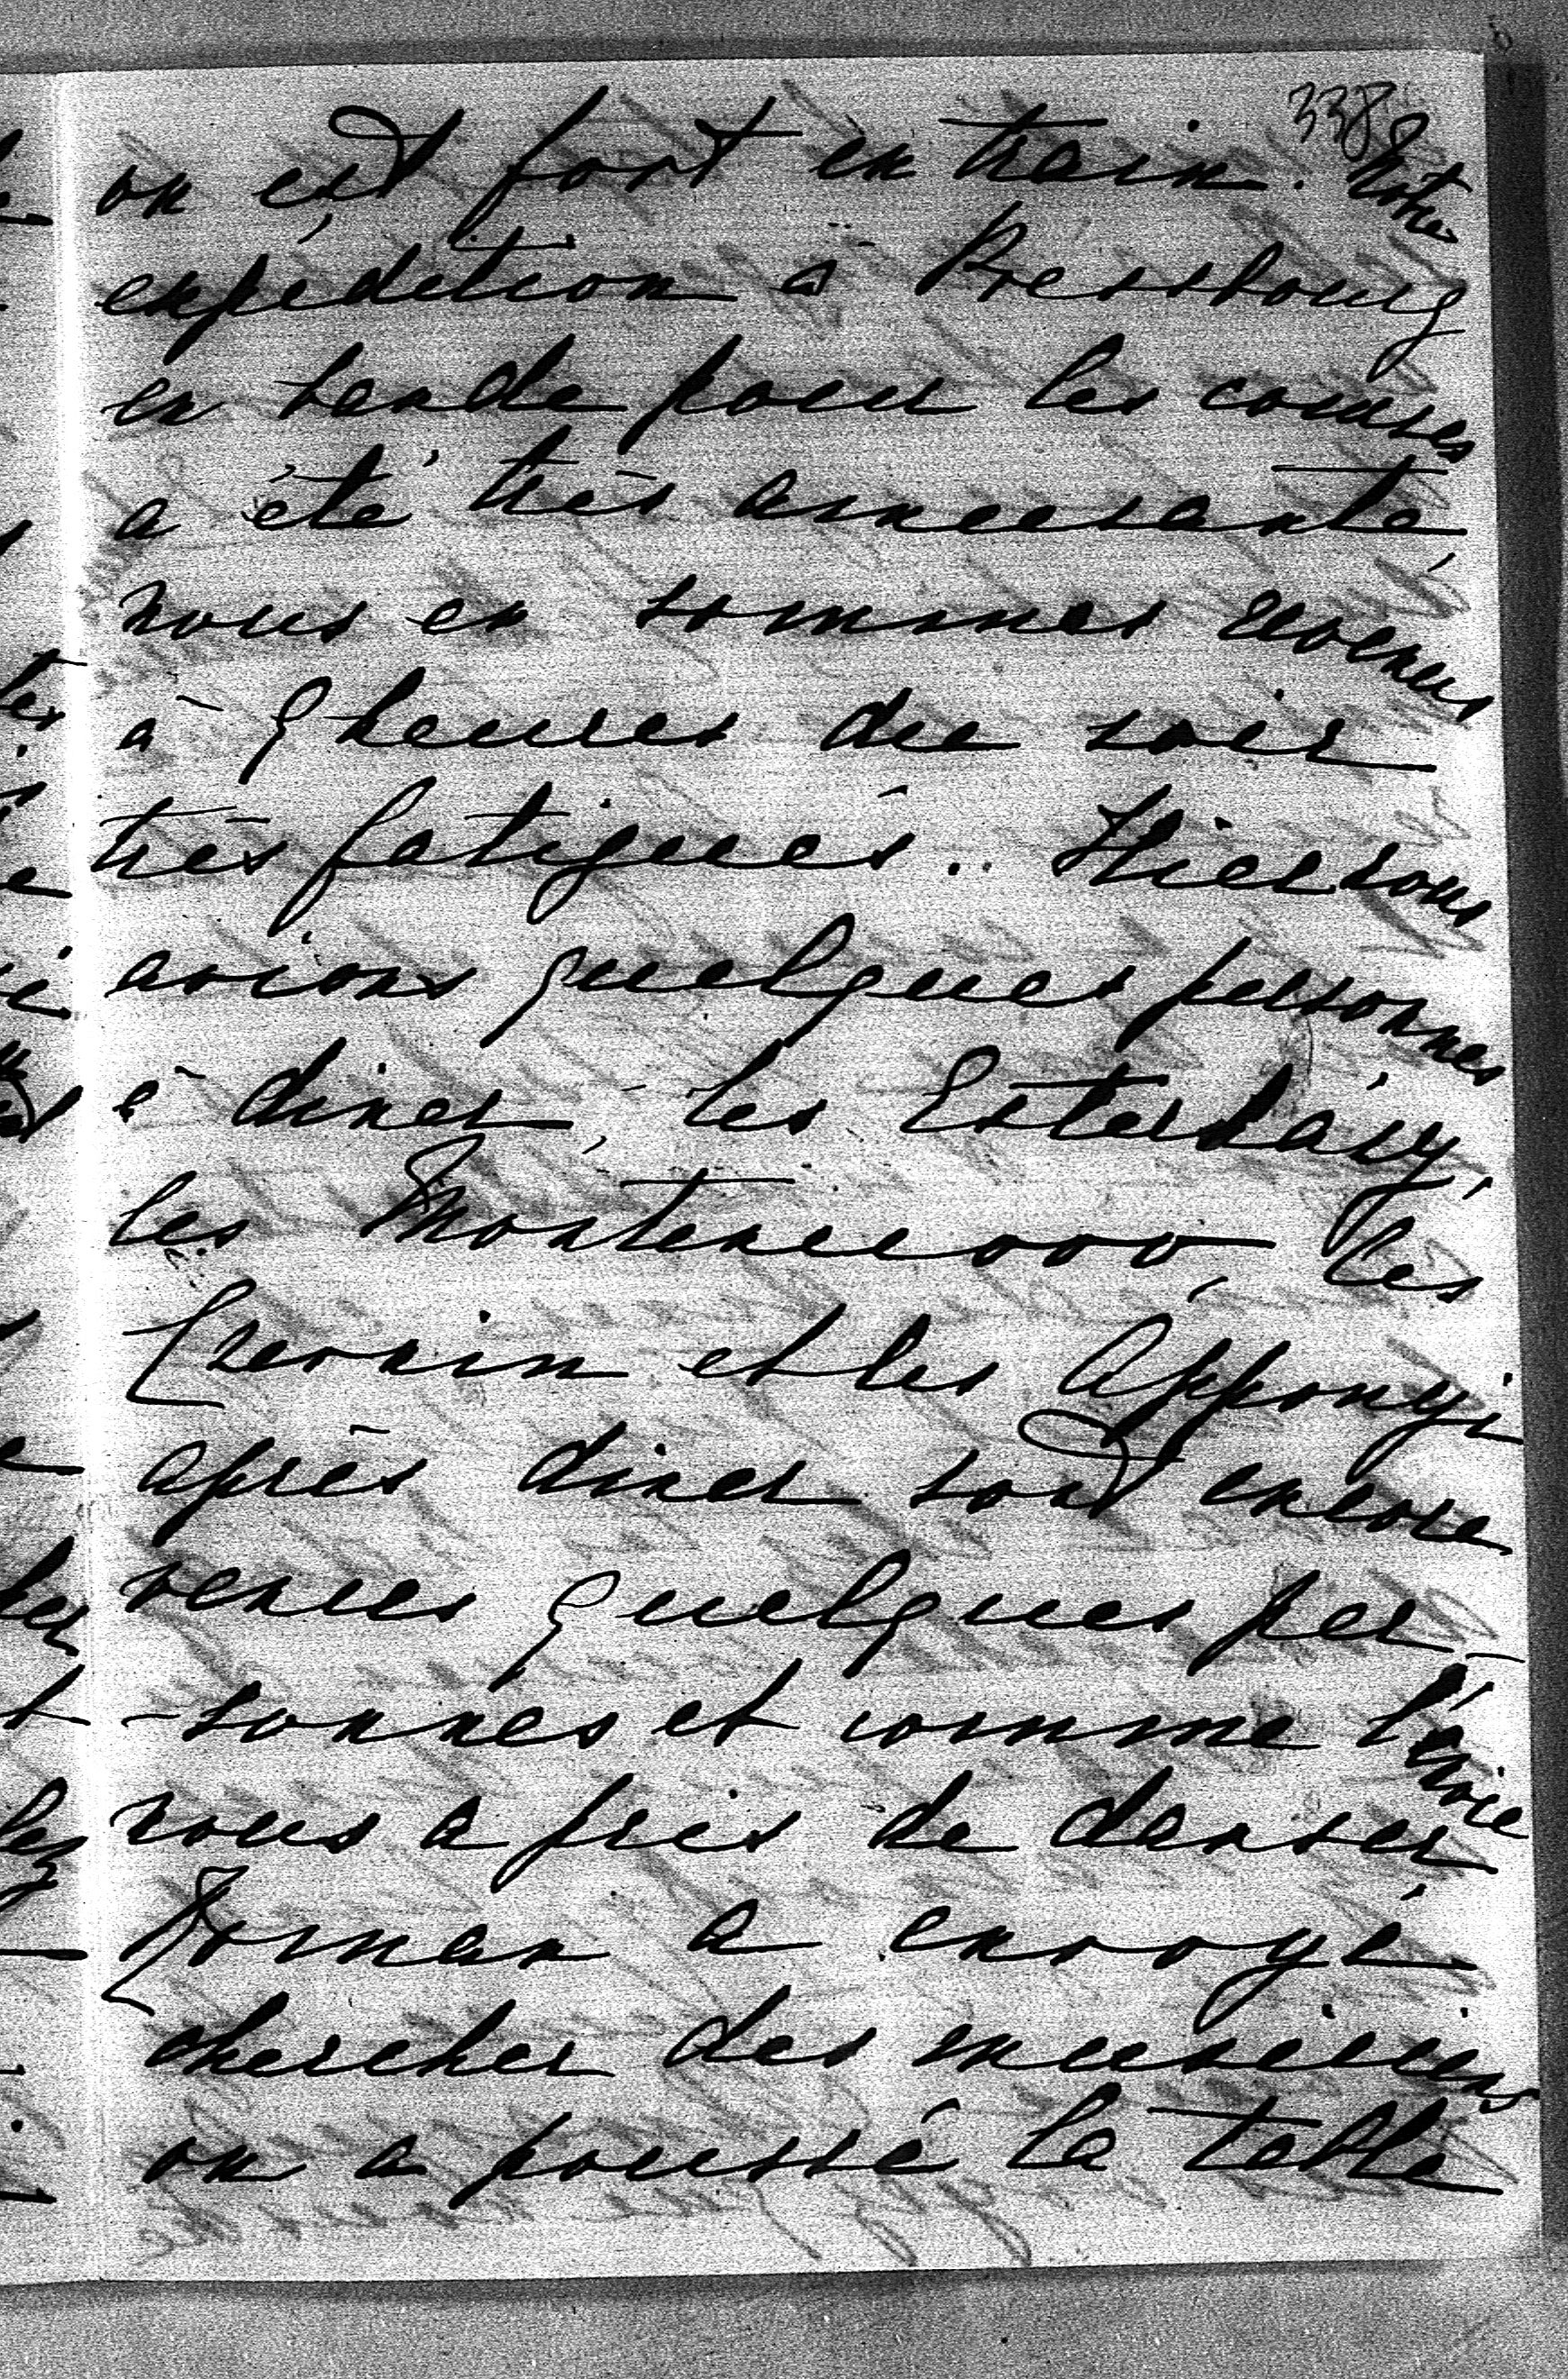 338
on est fort en train. Notre
expédition à Pressbourg
en bande pour les courses
a été très amusante,
nous en sommes revenus
à 9 heures du soir
très fatigués.. Hier nous
avions quelques personnes
à diner, les Esterházy,
les Montenuovo, les
Czernin et les Apponyi
après diner sont encore
venues quelques per-
-sonnes et comme l'envie
nous a pris de danser,
a envoyé
chercher des musiciens
on a poussé la table